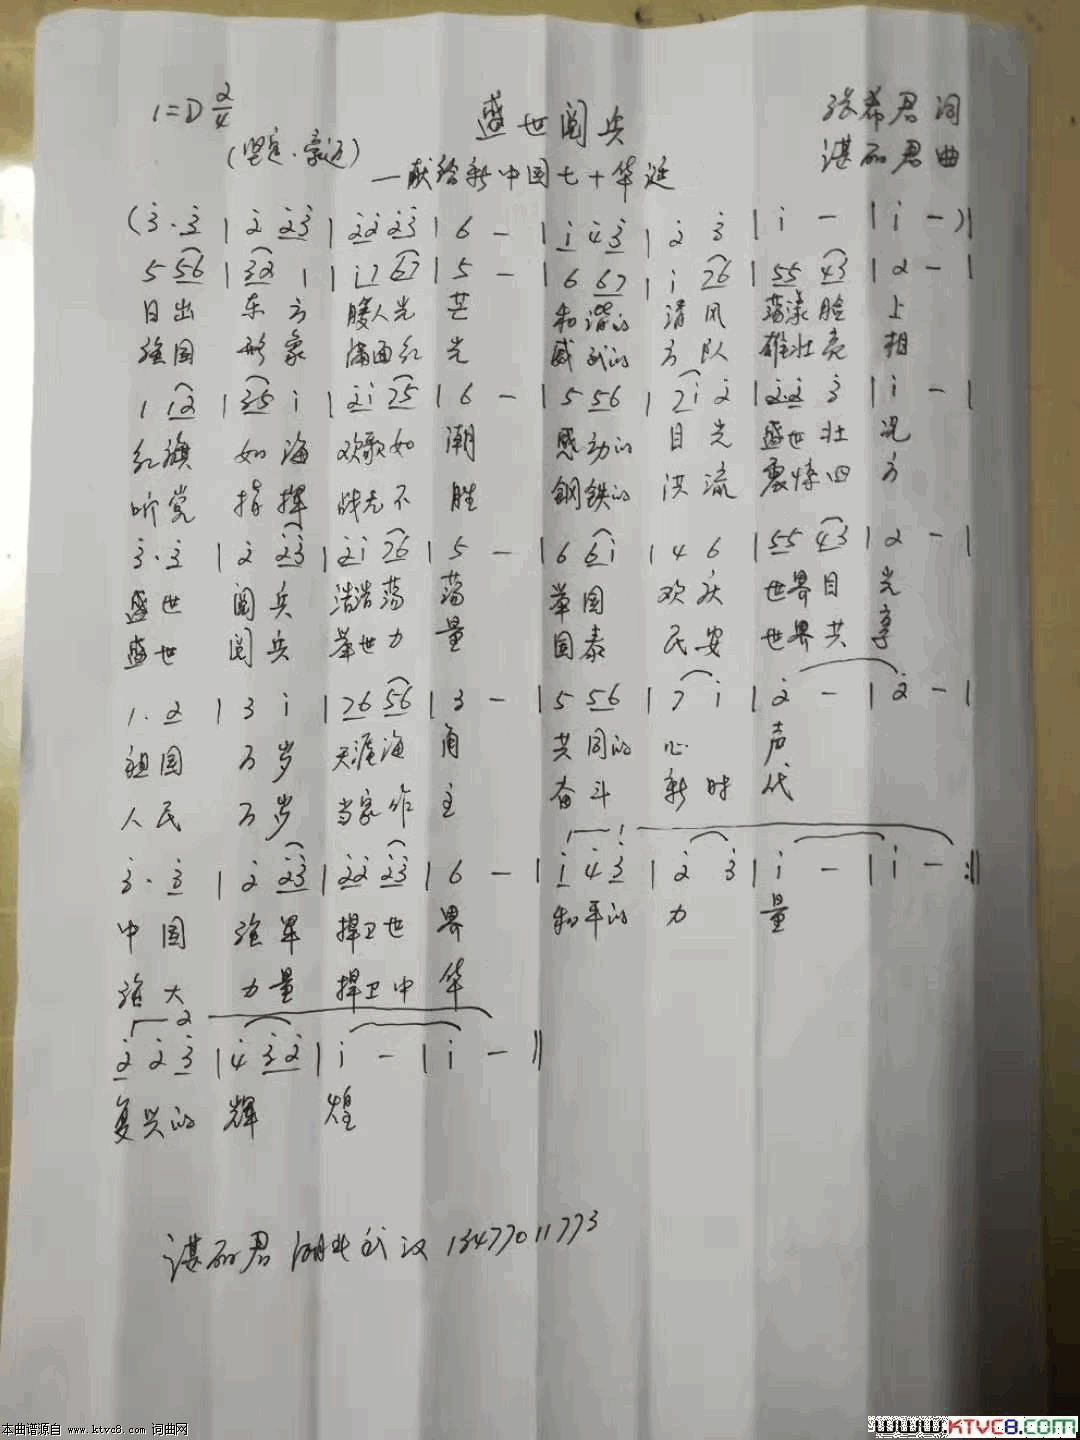 1=D 2/4
盛世阅兵
张希君词
(坚定、豪迈)
—献给新中国七十华诞
谌丽君曲
(3̇·3̇ | 2̇ 2̇3̇ | 2̇2̇ 2̇3̇ | 6 - | i 4̇ 3̇ | 2̇ 3̇ | i - | i -)|
5 56 | 32 1 | i7 67 | 5 - | 6 67 | i 76 | 55 43 | 2 - |
日出 东方 光芒 和谐的 清风 荡漾脸上
强国 形象 满面红光 威武的 方队 雄壮亮相
1 12 | 35 i | 2̇i 75 | 6 - | 5 56 | 7i 2̇ | 2̇2̇ 3̇ | i - |
红旗 如海 欢歌如潮 感动的 目光 盛世壮况
听党 指挥 战无不胜 钢铁的 洪流 震悚四方
3̇·3̇ | 2̇ 2̇3̇ | 2̇i 76 | 5 - | 6 6i | 4 6 | 55 43 | 2 - |
盛世 阅兵 浩浩荡荡 举国 欢庆 世界目光
盛世 阅兵 举世力量 国泰 民安 世界共享
1·2 | 3 i | 76 56 | 3 - | 5 56 | 7 i | 2̇ - | 2̇ - |
祖国 万岁 天涯海角 共同的 心 声
人民 万岁 当家作主 奋斗 新时代
1
3̇·3̇ | 2̇ 2̇3̇ | 2̇2̇ 2̇3̇ | 6 - | i 4̇ 3̇ | 2̇ 3̇ | i - | i - :‖
中国 强军 捍卫世界 和平的 力 量
强大 力量 捍卫中华
2
2̇ 2̇ 3̇ | 4̇ 3̇2̇ | i - | i - ‖
复兴的 辉 煌
谌丽君 湖北武汉 13477011773
本曲谱源自 www.ktvc8.com 词曲网
www.KTVC8.com